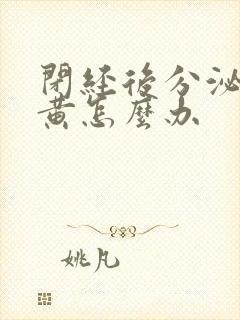 閉經後分泌
黃怎麼办
姚凡